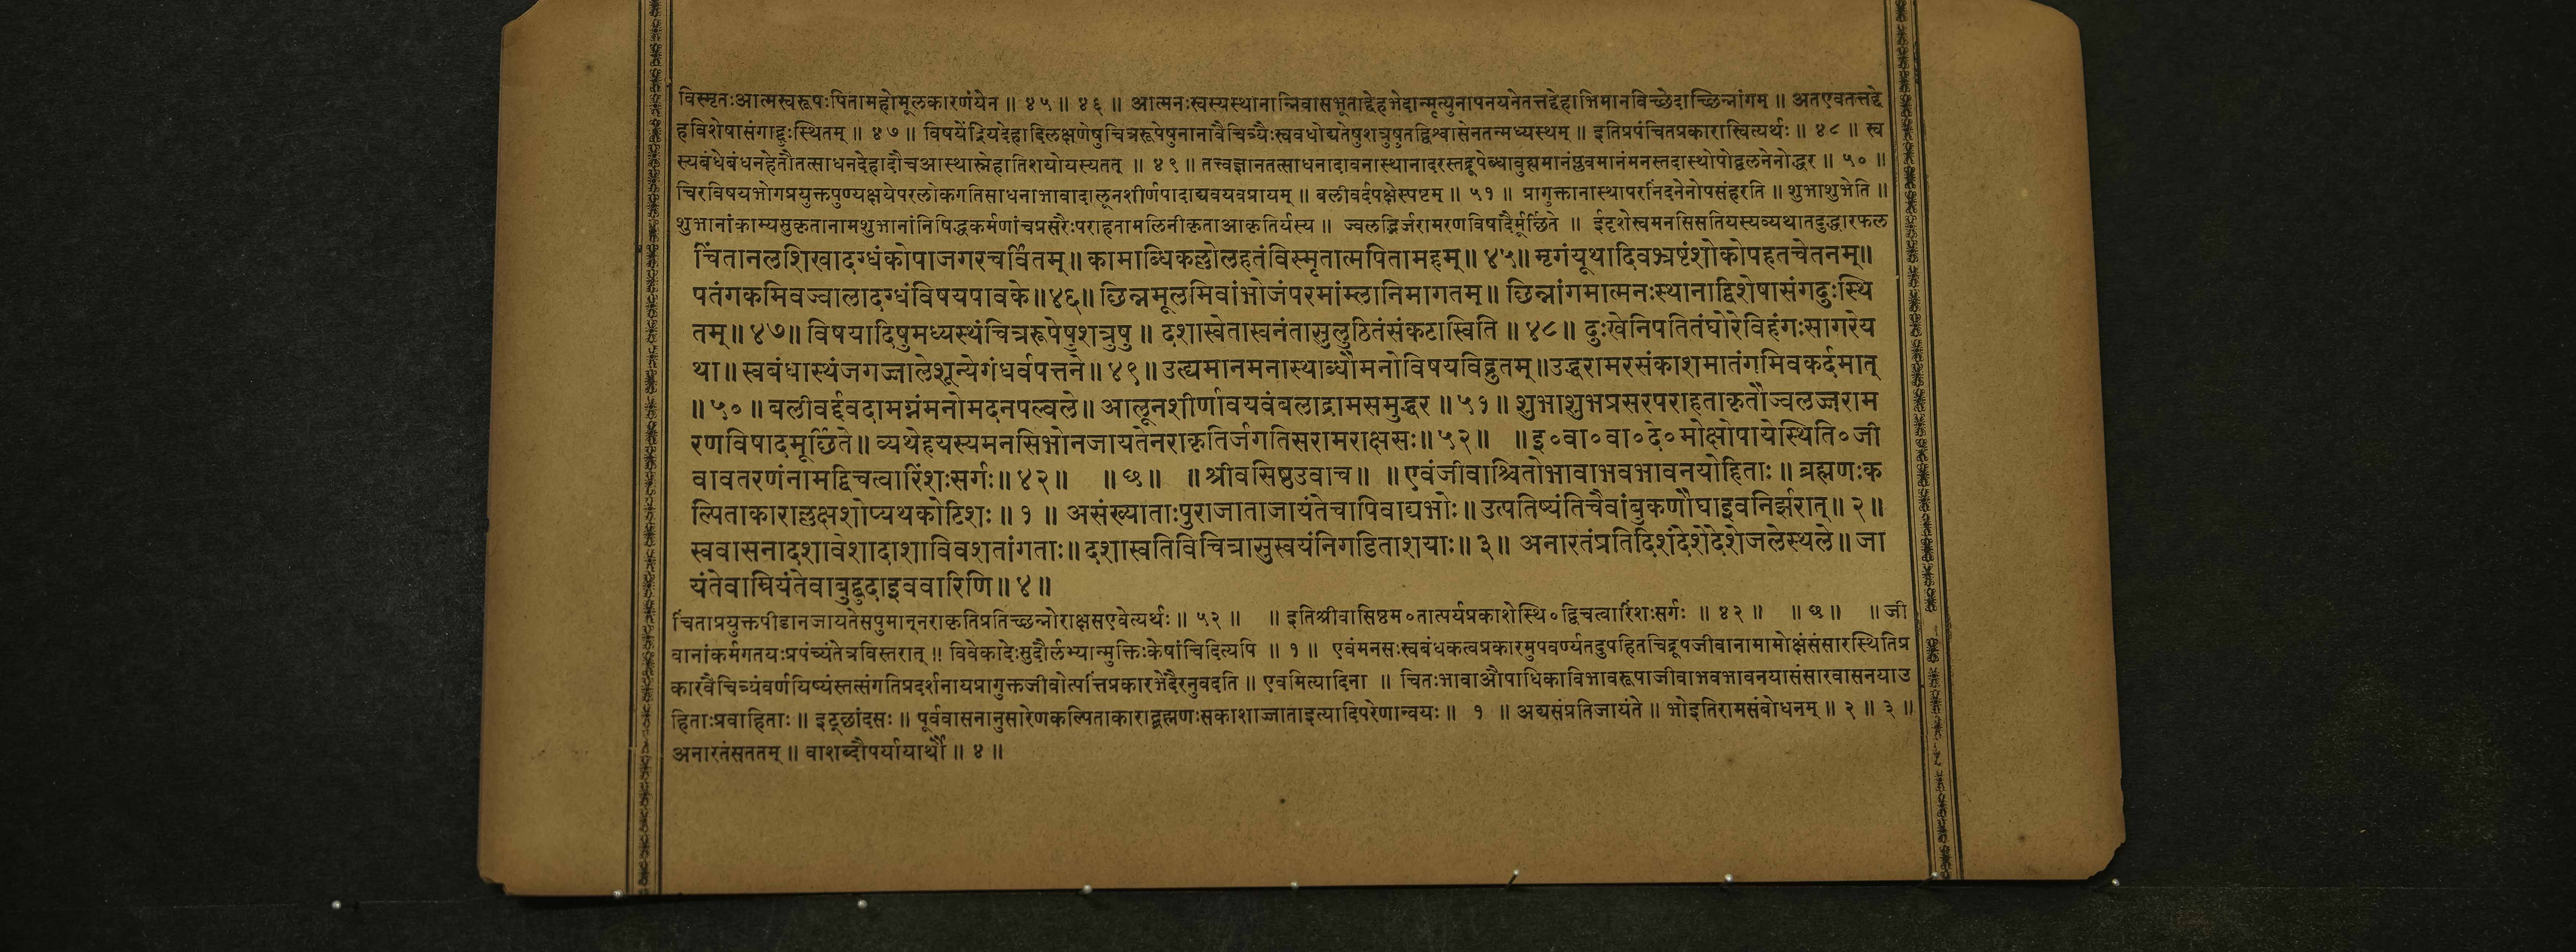 विस्मृतःआत्मस्वरूपःपितामहोमूलकारणंयेन ॥ ४५ ॥ ४६ ॥ आत्मनःस्वस्यस्थानान्निवासभूताद्देहभेदान्मृत्युनापनयनेतत्तद्देहाभिमानविच्छेदाच्छिन्नांगम् ॥ अतएवतत्तद्दे
हविशेषासंगाद्दुःस्थितम् ॥ ४७ ॥ विषयेंद्रियदेहादिलक्षणेषुचित्ररूपेषुनानावैचित्र्यैःस्ववधोद्यतेषुशत्रुषुतद्विश्वासेनतन्मध्यस्थम् ॥ इतिप्रपंचितप्रकारास्वित्यर्थः ॥ ४८ ॥ स्व
स्यबंधेबंधनहेतौतत्साधनदेहादौचआस्थास्नेहातिशयोयस्यतत् ॥ ४९ ॥ तत्त्वज्ञानतत्साधनादावनास्थानादरस्तद्रूपेब्धावुह्यमानंप्लवमानंमनस्तदास्थोपोद्वलनेनोद्धर ॥ ५० ॥
चिरविषयभोगप्रयुक्तपुण्यक्षयेपरलोकगतिसाधनाभावादालूनशीर्णपादाद्यवयवप्रायम् ॥ बलीवर्दपक्षेस्पष्टम् ॥ ५१ ॥ प्रागुक्तानास्थापरनिंदनेनोपसंहरति ॥ शुभाशुभेति ॥
शुभानांकाम्यसुकृतानामशुभानांनिषिद्धकर्मणांचप्रसरैःपराहतामलिनीकृताआकृतिर्यस्य ॥ ज्वलद्भिर्जरामरणविषादैर्मूर्छिते ॥ ईदृशेस्वमनसिसतियस्यव्यथातदुद्धारफल
चिंतानलशिखादग्धंकोपाजगरचर्वितम् ॥ कामाब्धिकल्लोलहतंविस्मृतात्मपितामहम् ॥ ४५ ॥ मृगंयूथादिवभ्रष्टंशोकोपहतचेतनम् ॥
पतंगकमिवज्वालादग्धंविषयपावके ॥ ४६ ॥ छिन्नमूलमिवांभोजंपरमांम्लानिमागतम् ॥ छिन्नांगमात्मनःस्थानाद्विशेषासंगदुःस्थि
तम् ॥ ४७ ॥ विषयादिषुमध्यस्थंचित्ररूपेषुशत्रुषु ॥ दशास्वेतास्वनंतासुलुठितंसंकटास्विति ॥ ४८ ॥ दुःखेनिपतितंघोरेविहंगःसागरेय
था ॥ स्वबंधास्थंजगज्जालेशून्येगंधर्वपत्तने ॥ ४९ ॥ उह्यमानमनास्थाब्धौमनोविषयविद्रुतम् ॥ उद्धरामरसंकाशमातंगमिवकर्दमात्
॥ ५० ॥ बलीवर्दवदामग्नंमनोमदनपल्वले ॥ आलूनशीर्णावयवंबलाद्रामसमुद्धर ॥ ५१ ॥ शुभाशुभप्रसरपराहताकृतौज्वलज्जराम
रणविषादमूर्छिते ॥ व्यथेहयस्यमनसिभोनजायतेनराकृतिर्जगतिसरामराक्षसः ॥ ५२ ॥ ॥ इ०वा०वा०दे०मोक्षोपायेस्थिति०जी
वावतरणंनामद्विचत्वारिंशःसर्गः ॥ ४२ ॥ ॥ छ ॥ ॥ श्रीवसिष्ठउवाच ॥ ॥ एवंजीवाश्चितोभावाभवभावनयोहिताः ॥ ब्रह्मणःक
ल्पिताकाराल्लक्षशोप्यथकोटिशः ॥ १ ॥ असंख्याताःपुराजाताजायंतेचापिवाद्यभोः ॥ उत्पतिष्यंतिचैवांबुकणौघाइवनिर्झरात् ॥ २ ॥
स्ववासनादशावेशादाशाविवशतांगताः ॥ दशास्वतिविचित्रासुस्वयंनिगडिताशयाः ॥ ३ ॥ अनारतंप्रतिदिशंदेशेदेशेजलेस्थले ॥ जा
यंतेवाम्रियंतेवाबुद्बुदाइववारिणि ॥ ४ ॥
चिंताप्रयुक्तपीडानजायतेसपुमान्नराकृतिप्रतिच्छन्नोराक्षसएवेत्यर्थः ॥ ५२ ॥ ॥ इतिश्रीवासिष्ठम०तात्पर्यप्रकाशेस्थि०द्विचत्वारिंशःसर्गः ॥ ४२ ॥ ॥ छ ॥ ॥ जी
वानांकर्मगतयःप्रपंच्यंतेत्रविस्तरात् ॥ विवेकादेःसुदौर्लभ्यान्मुक्तिःकेषांचिदित्यपि ॥ १ ॥ एवंमनसःस्वबंधकत्वप्रकारमुपवर्ण्यतदुपहितचिद्रूपजीवानामामोक्षंसंसारस्थितिप्र
कारवैचित्र्यंवर्णयिष्यंस्तत्संगतिप्रदर्शनायप्रागुक्तजीवोत्पत्तिप्रकारभेदैरनुवदति ॥ एवमित्यादिना ॥ चितःभावाऔपाधिकाविभावरूपाजीवाभवभावनयासंसारवासनयाउ
हिताःप्रवाहिताः ॥ इट्छांदसः ॥ पूर्ववासनानुसारेणकल्पिताकाराद्ब्रह्मणःसकाशाज्जाताइत्यादिपरेणान्वयः ॥ १ ॥ अद्यसंप्रतिजायंते ॥ भोइतिरामसंबोधनम् ॥ २ ॥ ३ ॥
अनारतंसततम् ॥ वाशब्दौपर्यायार्थौ ॥ ४ ॥